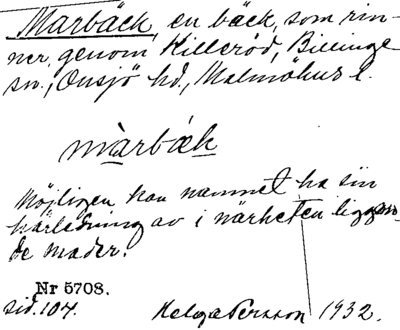 Marbäck, en bäck, som rin-
ner genom Killeröd, Billinge
sn., Onsjö hd., Malmöhus l.
màrbäk
Möjligen kan namnet ha sin
härledning av i närheten liggan-
de mader.
Nr 5708.
sid. 104. Helge Persson 1932.